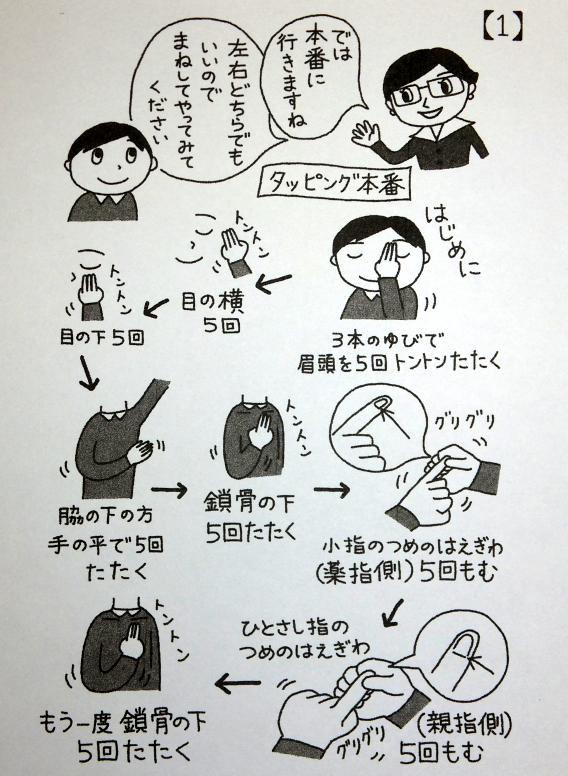 【1】
では
本番に
行きますね
左右どちらでも
いいので
まねしてやってみて
ください
タッピング本番
はじめに
3本のゆびで
眉頭を5回 トントンたたく
トントン
目の横
5回
トントン
目の下5回
脇の下の方
手の平で5回
たたく
トントン
鎖骨の下
5回たたく
グリグリ
小指のつめのはえぎわ
(薬指側)5回もむ
ひとさし指の
つめのはえぎわ
(親指側)
5回もむ
グリグリ
トントン
もう一度 鎖骨の下
5回たたく